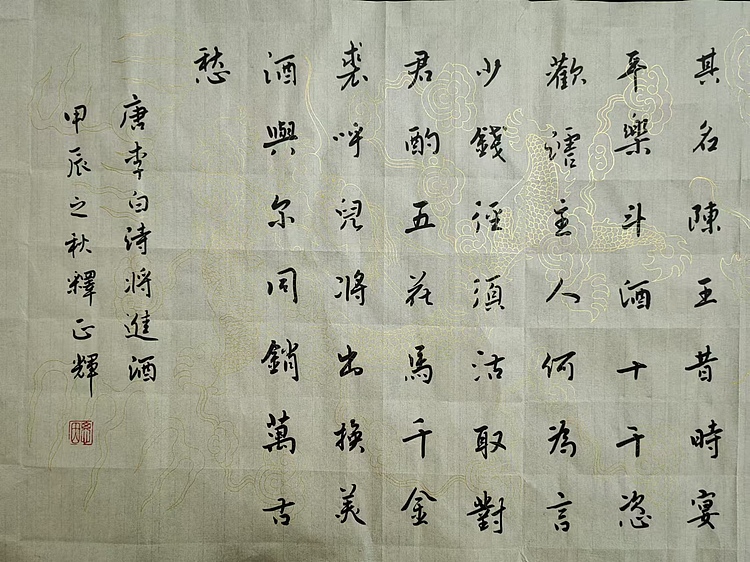 其名陳王昔時宴
平樂斗酒十千恣
歡謔主人何為言
少錢徑須沽取對
君酌五花馬千金
裘呼兒將出換美
酒與尔同銷萬古
愁
唐李白诗將進酒
甲辰之秋釋正輝